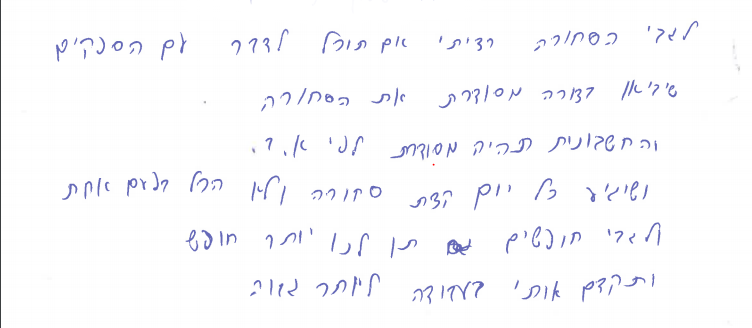 לגבי הסחורה רציתי אם תוכל לדבר עם הספקים
שיביאו בצורה מסודרת את הסחורה
והחשבונית תהיה מסודרת לפי א.ב.
ושיגיע כל יום קצת סחורה ולא הכל בפעם אחת
ולגבי חופשים תן לנו יותר חופש
ותקדם אותי בעבודה ליותר גבוה